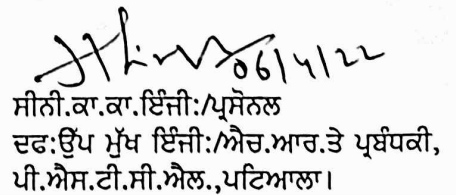 06/4/22
ਸੀਨੀ.ਕਾ.ਕਾ.ਇੰਜੀ:/ਪ੍ਰਸੋਨਲ
ਦਫ:ਉੱਪ ਮੁੱਖ ਇੰਜੀ:/ਐਚ.ਆਰ.ਤੇ ਪ੍ਰਬੰਧਕੀ,
ਪੀ.ਐਸ.ਟੀ.ਸੀ.ਐਲ.,ਪਟਿਆਲਾ।